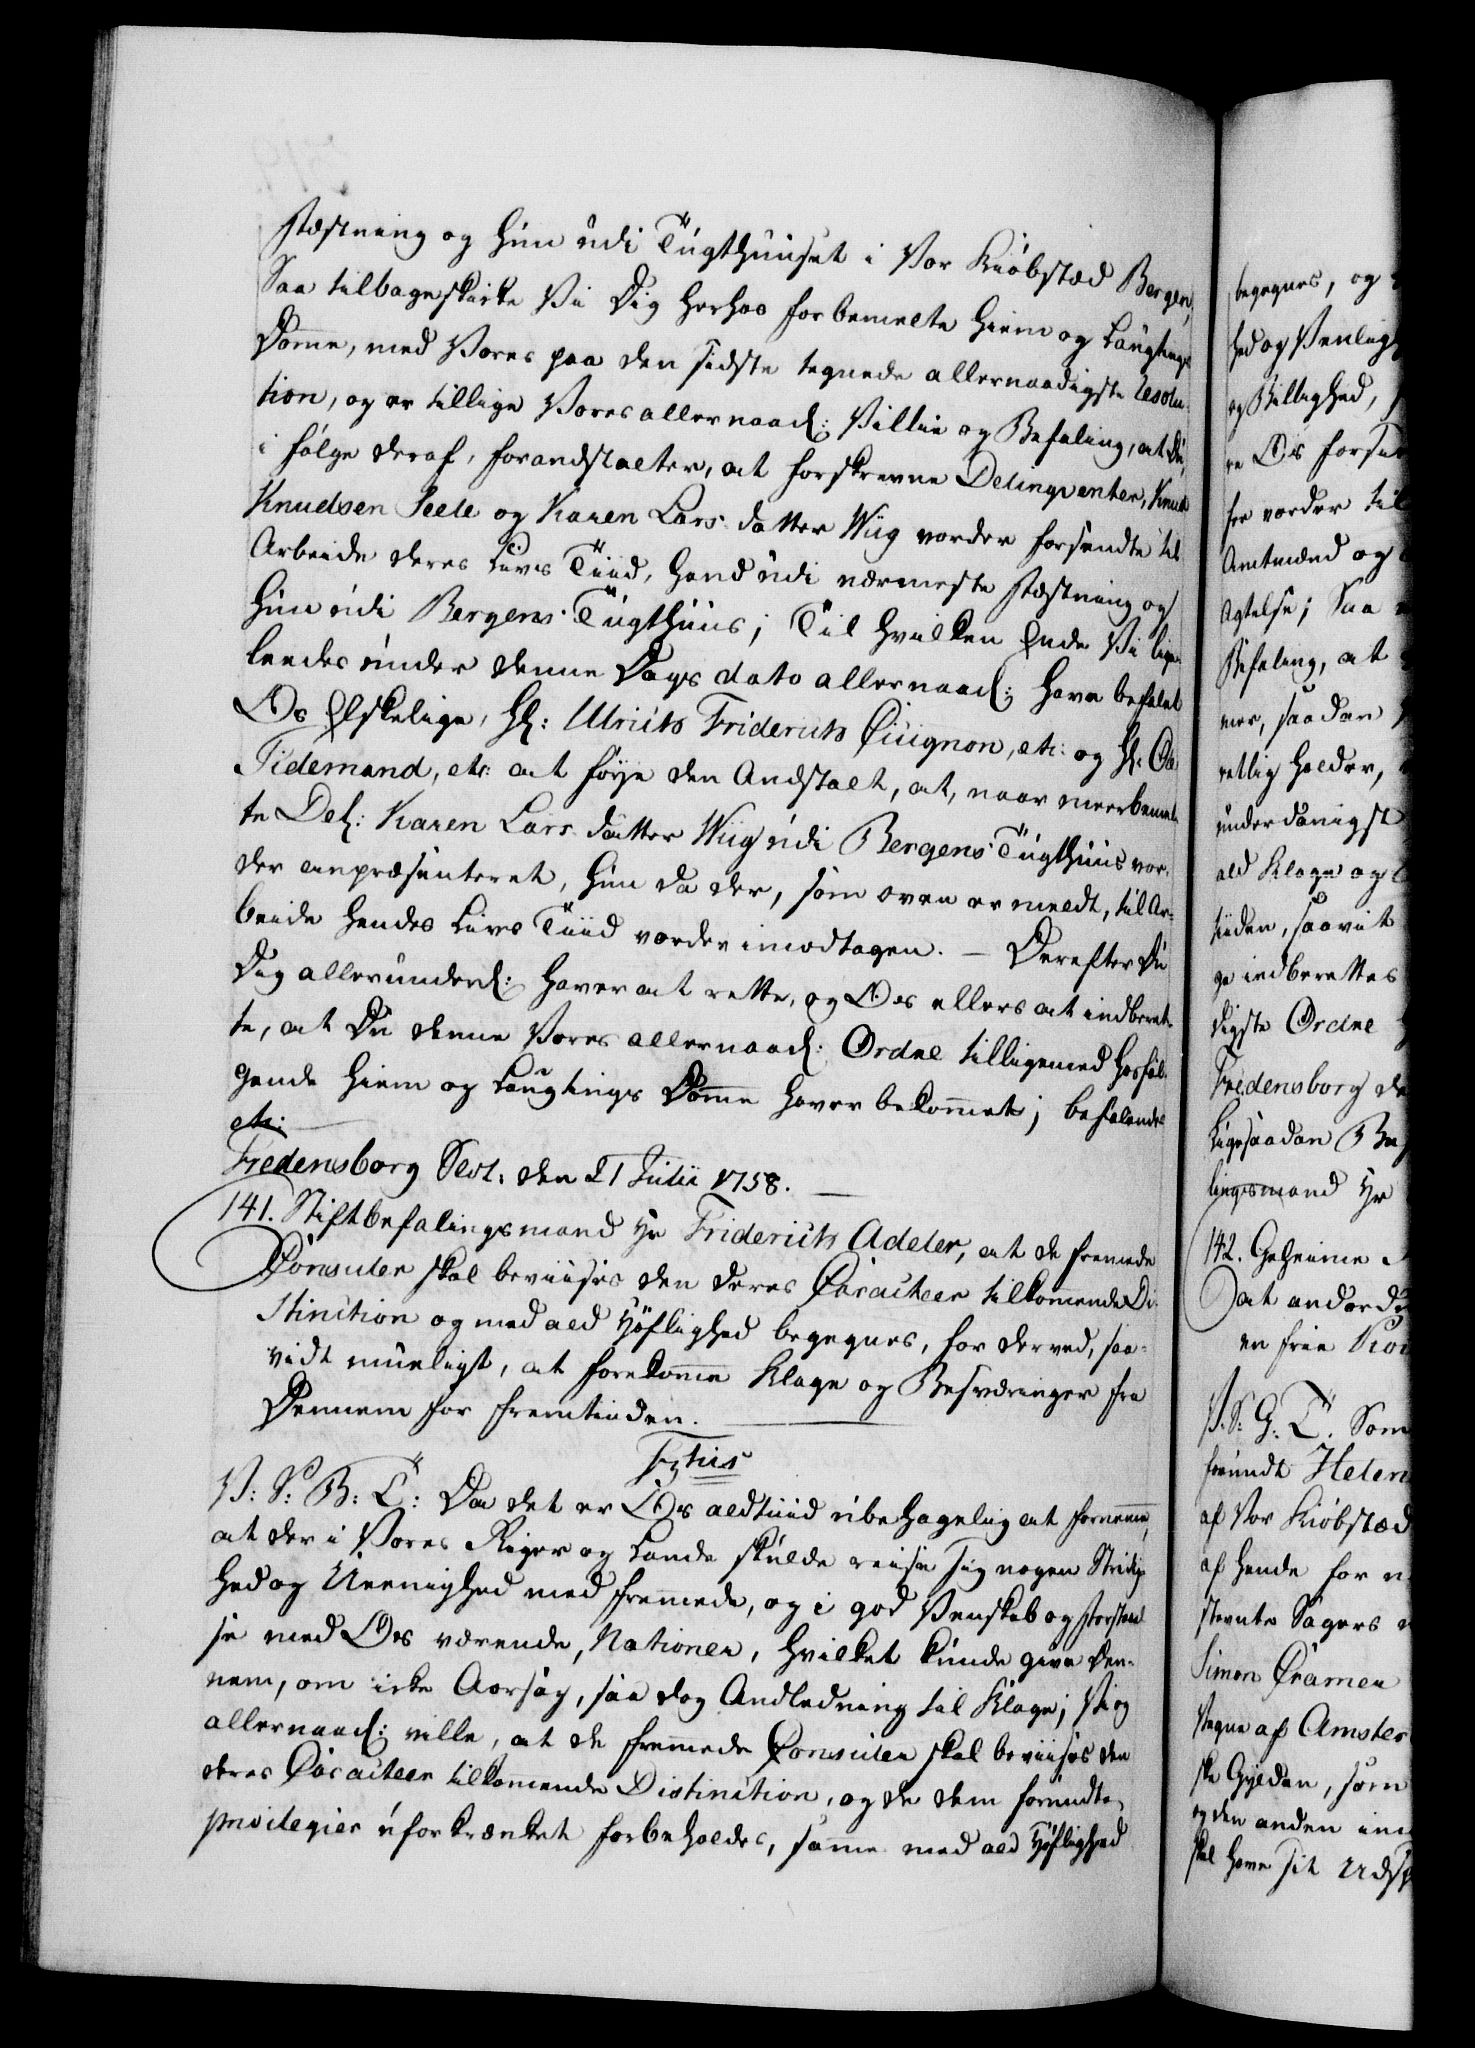 Fæstning og hun udi Tugthuuset i Vor Kiöbstæd Bergen,
Saa tilbageskikke Vi Dig herhos forbemelte Hiem og Laugtings
Domme, med Vores paa den sidste tegnede allernaadigste Resolu-
tion, og er tillige Vores allernaad: Villie og Befaling, at Du,
i fölge deraf, foranstalter, at forskrevne Delinqventer, Knud
Knudsen Seele og Karen Lars datter Wiig vorder forsendte til
Arbeide deres Livs Tiid, hand udi nærmeste Fæstning og
hun udi Bergens Tugthuus; Til hvilken Ende Vi lige-
ledes under denne Dags dato allernaad: have befalet
Os Elskelige, Hr: Ulrich Friderich Cicignon, etc: og Hr: Ole
Tidemand, etc: at föye den Andstalt, at, naar meerbemel-
te Del: Karen Lars datter Wiig udi Bergens Tugthuus vor-
der anpræsenteret, hun da der, som oven er meldt, til Ar-
beide hendes Livs Tiid vorder imodtagen. — Derefter Du
Dig allerunderd: haver at rette, og Os ellers at indberet-
te, at Du denne Vores allernaad: Ordre tilligemed hosföl-
gende Hiem og Laugtings Domme haver bekommet; befalendes
etc:
Fredensborg Slot: den 21 Julii 1758. —
141. Stiftbefalingsmand Hr Friderich Adeler, at de fremmede
Consuler skal beviises den deres Caracteer tilkomende Di-
stinction og med ald Höflighed begegnes, for derved, saa-
vidt mueligt, at forekomme Klage og Besværinger fra
Dennem for fremtiiden. —
F5tus
V: S: B: T: Da det er Os aldtiid ubehagelig at fornemme,
at der i Vores Riger og Lande skulde reise sig nogen Stridig-
hed og Ueenighed med fremmede, og i god Venskab og Forstaael-
se med Os værende, Nationer, hvilket kunde give den-
nem, om icke Aarsag, saa dog Andledning til Klage; Vi og
allernaad: ville, at de fremmede Consuler skal beviises den
deres Caracteer tilkomende Distinction, og de dem forundte
privilegier uforkrænket forbeholdes, samme med ald Höflighed
begegnes, og
hed og Venligh
og Billighed,
re Os forsee
see vorder til
Amtmænd og
Agtelse; Saa
Befaling, at
mer, saadan
retlig holder,
underdanigst
ald Klage og
tiiden, saavit
ge indberettes
digste Ordre
Fredensborg de
Ligesaadan Be
lingsmand Hr
142. Geheime
at anordn
en frie
V: S: G: T. Som
forundt Helen
af Vor Kiöbstæd
af hende for
stevnte Sagers
Simon Cramer
Vegne af Amster
ske Gylden, som
og den anden
skal have sit Uds